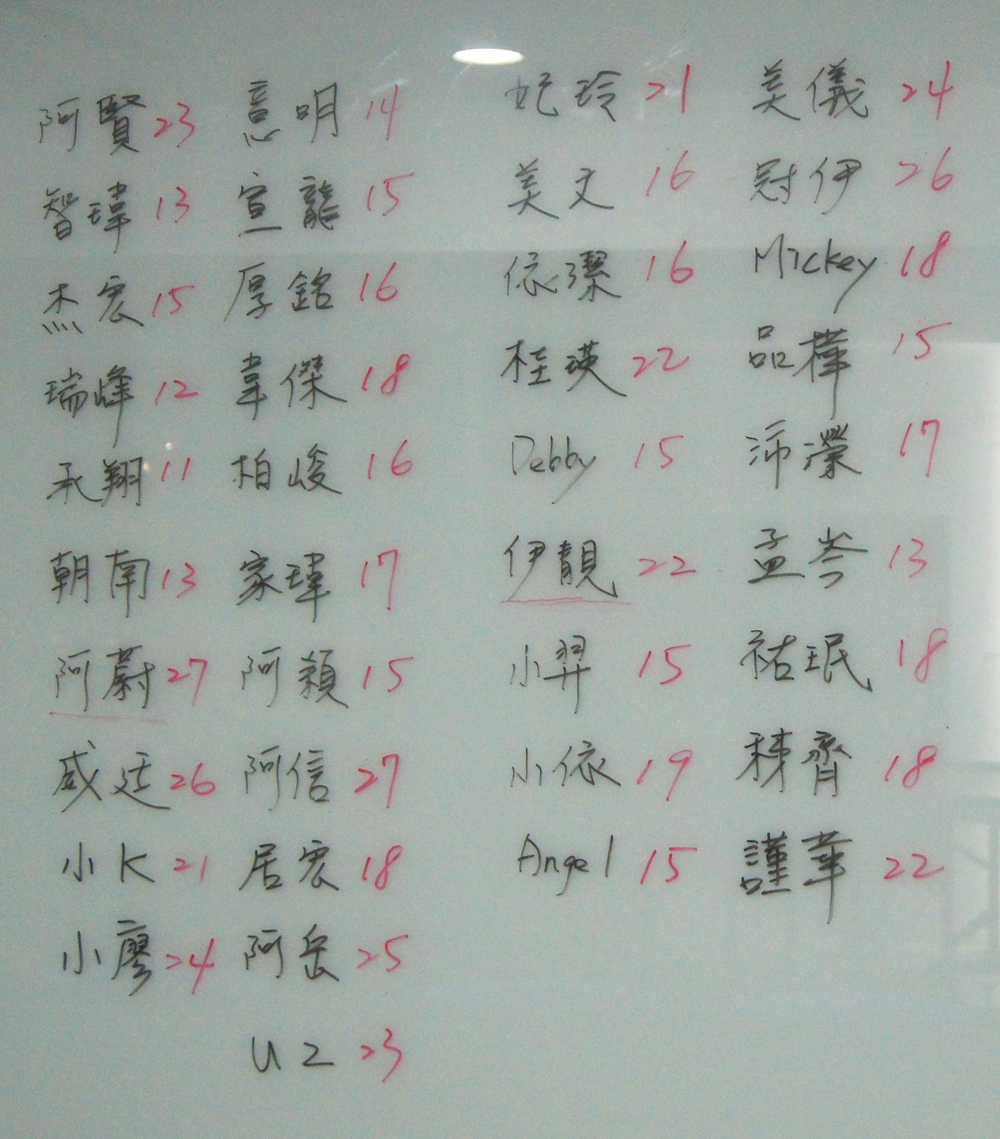 阿賢 23 意明 14 妃玲 21 美儀 24
智瑋 13 宣龍 15 美文 16 冠伊 26
杰宏 15 厚銘 16 依潔 16 Mickey 18
瑞峰 12 韋傑 18 桂瑛 22 品樺 15
承翔 11 柏峻 16 Debby 15 沛瀠 17
朝南 13 家瑋 17 伊靚 22 孟岑 13
阿蔚 27 阿穎 15 小羿 15 祐珉 18
威廷 26 阿信 27 小依 19 齊 18
小K 21 居宏 18 Angel 15 謹華 22
小廖 24 阿岳 25
U2 23